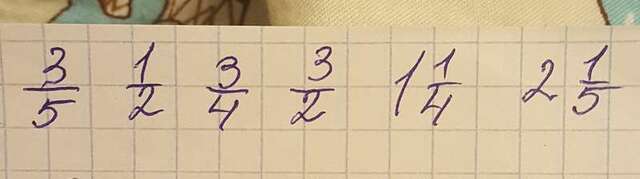 3/5 1/2 3/4 3/2 1 1/4 2 1/5